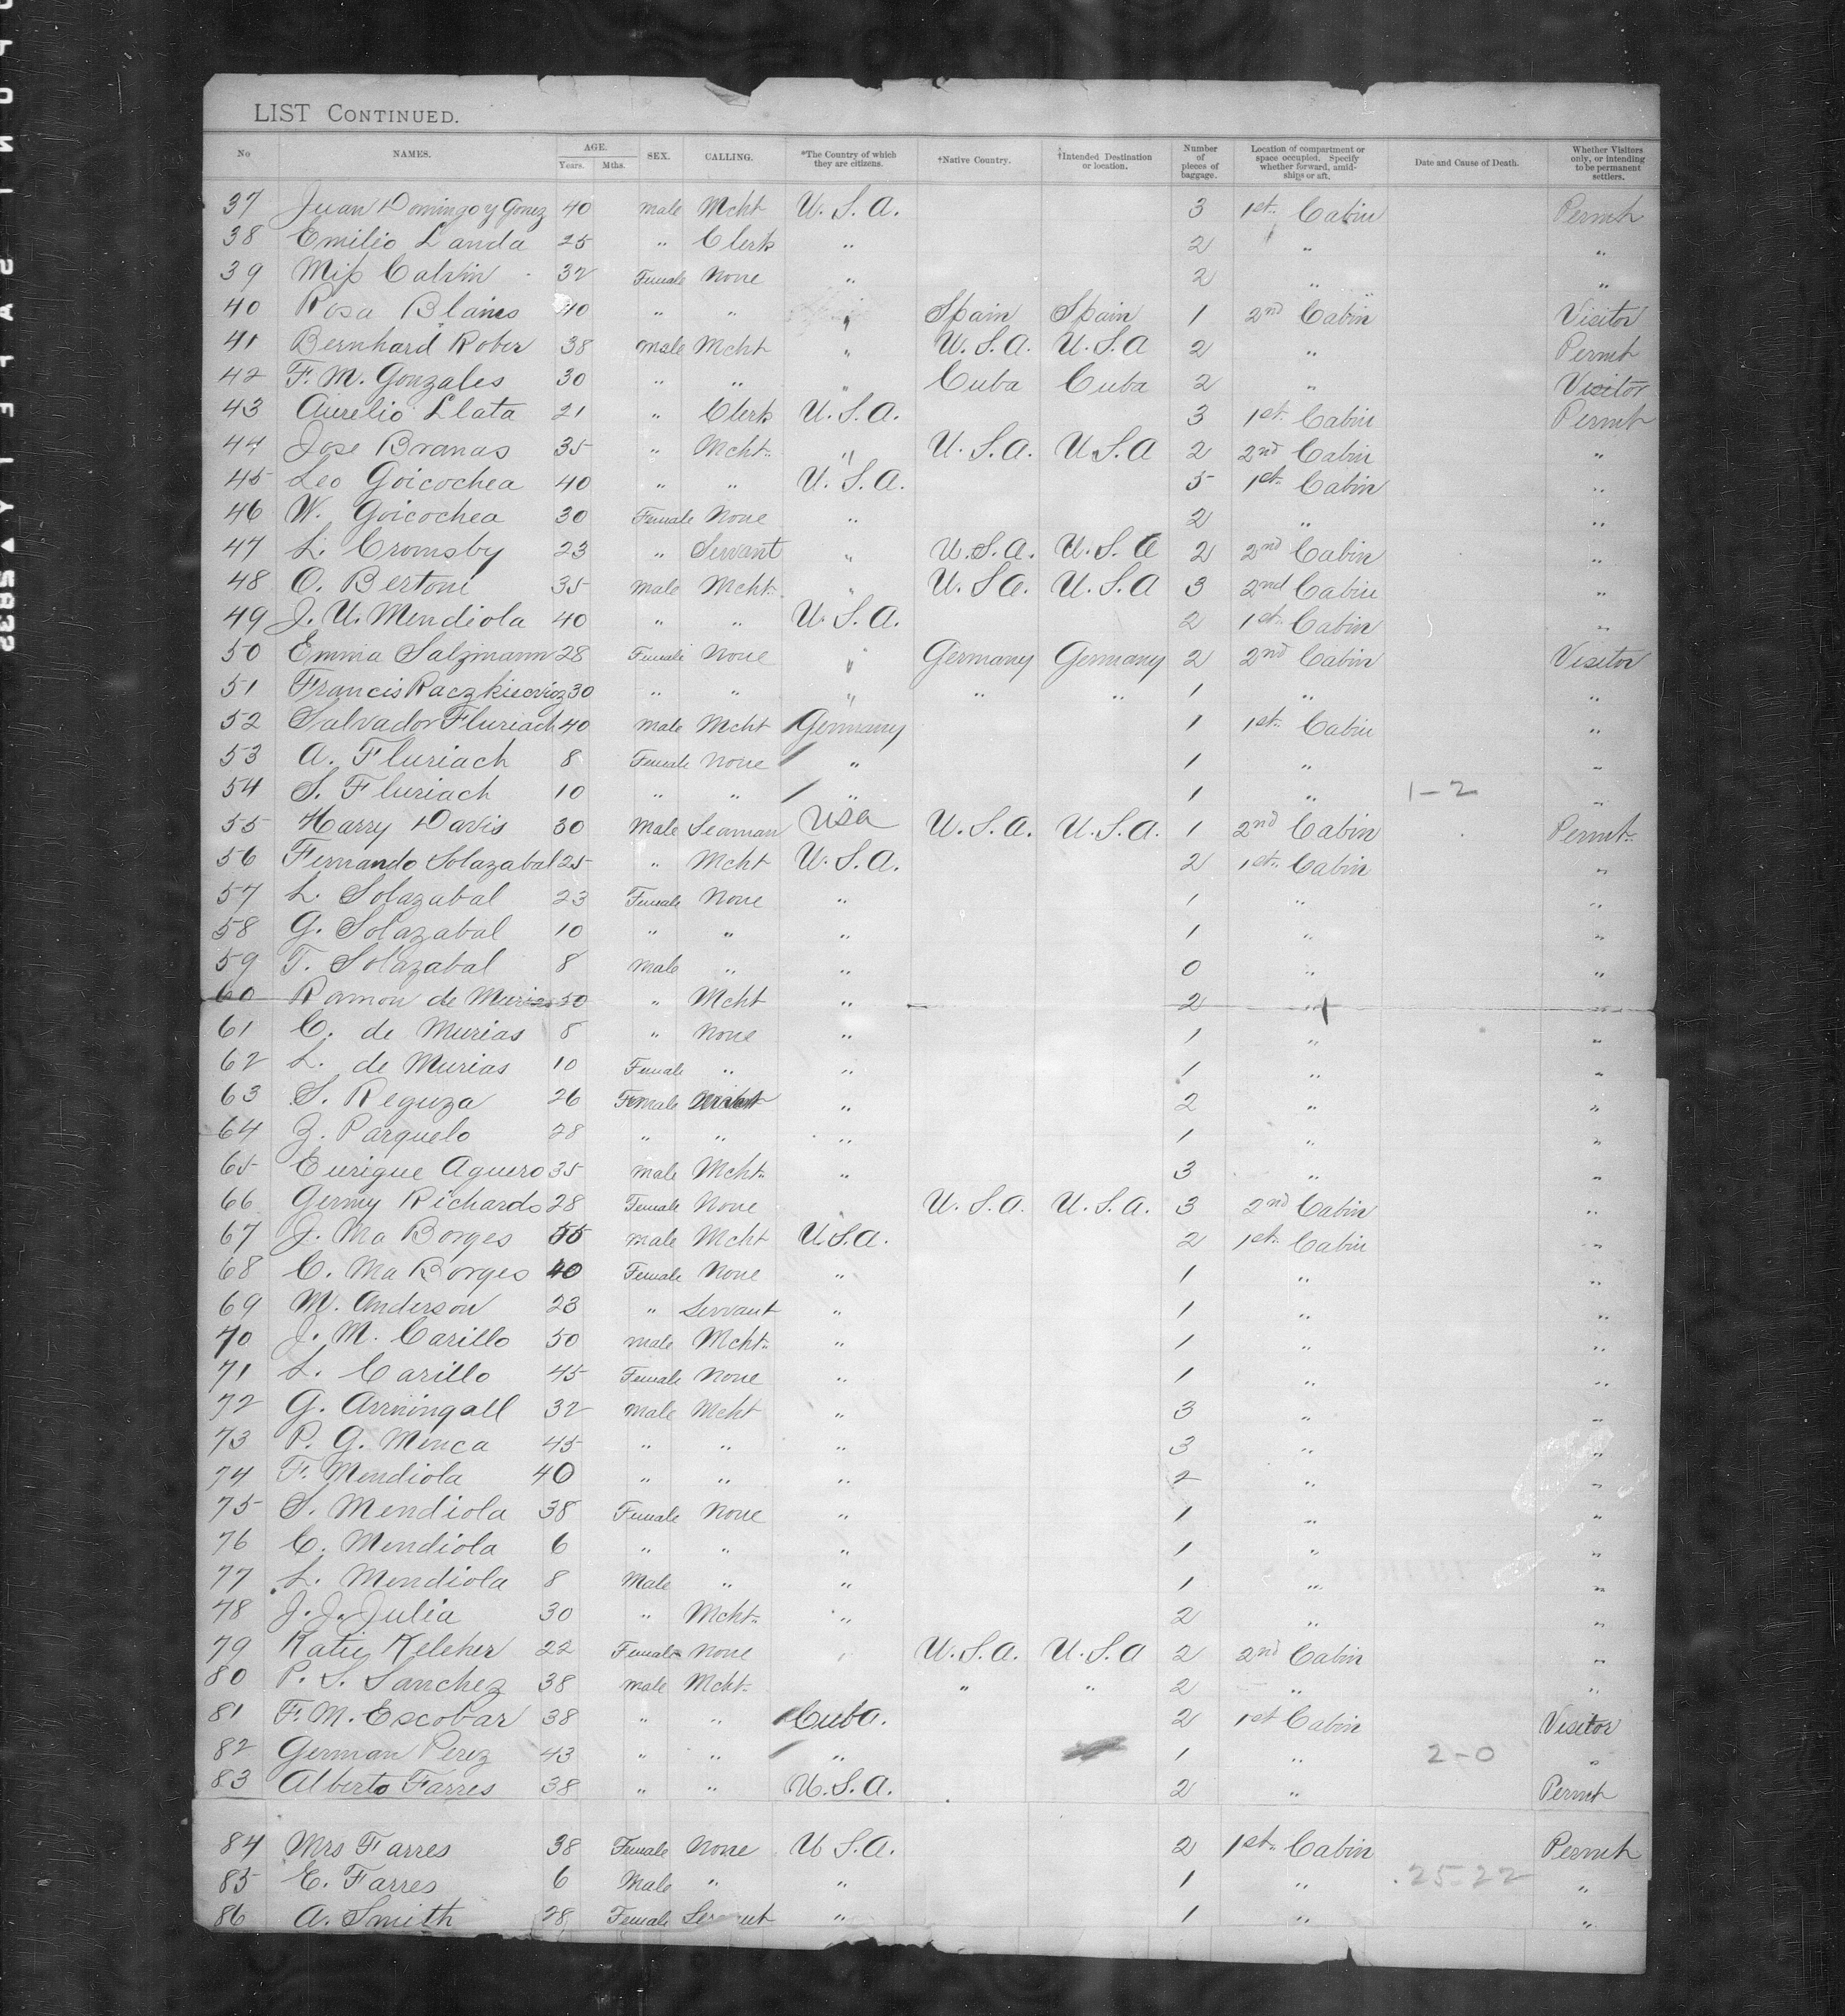 LIST CONTINUED.
No NAMES. AGE. Years. Mths. SEX. CALLING. *The Country of which they are citizens. †Native Country. †Intended Destination or location. Number of pieces of baggage. Location of compartment or space occupied. Specify whether forward, amidships or aft. Date and Cause of Death. Whether Visitors only, or intending to be permanent settlers.
37 Juan Domingo y Gonez 40 male Mcht U.S.A. 3 1st Cabin Permt
38 Emilio Landa 25 " Clerk " 2 " "
39 Miss 32 Female None " 2 " "
40 Rosa 40 " " " Spain Spain 1 2nd Cabin Visitor
41 Bernhard Rober 38 male Mcht " U.S.A. U.S.A 2 " Permt
42 F. M. Gonzales 30 " " " Cuba Cuba 2 " Visitor
43 Aurelio Llata 21 " Clerk U.S.A. 3 1st Cabin Permt
44 Jose Branas 35 " Mcht " U.S.A. U.S.A 2 2nd Cabin "
45 Leo Goicochea 40 " " U.S.A. 5 1st Cabin "
46 W. Goicochea 30 Female None " 2 " "
47 L. Cromsby 23 " Servant " U.S.A. U.S.A 2 2nd Cabin "
48 O. Bertoni 35 male Mcht " U.S.A. U.S.A 3 2nd Cabin "
49 J. U. Mendiola 40 " " U.S.A. 2 1st Cabin "
50 Emma Salzmann 28 Female None " Germany Germany 2 2nd Cabin Visitor
51 Francis 30 " " " " " 1 " "
52 Salvador Fluriach 40 male Mcht Germany 1 1st Cabin "
53 A. Fluriach 8 Female None " 1 " "
54 S. Fluriach 10 " " " 1 " 1-2 "
55 Harry Davis 30 Male Seaman USA U.S.A. U.S.A. 1 2nd Cabin Permt
56 Fernando Solazabal 25 " Mcht U.S.A. 2 1st Cabin "
57 L. Solazabal 23 Female None " 1 " "
58 G. Solazabal 10 " " " 1 " "
59 T. Solazabal 8 male " " 0 " "
60 Ramon de Murias 50 " Mcht " 2 " "
61 C. de Murias 8 " None " 1 " "
62 L. de Murias 10 Female " " 1 " "
63 S. Reguza 26 Female " 2 " "
64 Z. Parquelo 28 " " " 1 " "
65 Enrique Aguero 35 male Mcht " 3 " "
66 Germy Richards 28 Female None U.S.A. U.S.A. 3 2nd Cabin "
67 J. Ma Borges 55 male Mcht U.S.A. 2 1st Cabin "
68 C. Ma Borges 40 Female None " 1 " "
69 M. Anderson 23 " Servant " 1 " "
70 J. M. Carillo 50 male Mcht " 1 " "
71 L. Carillo 45 Female None " 1 " "
72 G. Armingall 32 male Mcht " 3 " "
73 P. G. Menca 45 " " " 3 " "
74 F. Mendiola 40 " " " 2 " "
75 S. Mendiola 38 Female None " 1 " "
76 C. Mendiola 6 " " " 1 " "
77 L. Mendiola 8 Male " " 1 " "
78 J. J. Julia 30 " Mcht " 2 " "
79 Katie Keleher 22 Female None U.S.A. U.S.A 2 2nd Cabin "
80 P. S. Sanchez 38 male Mcht " " 2 " "
81 F. M. Escobar 38 " " Cuba. 2 1st Cabin Visitor
82 German Perez 43 " " " 1 " 2-0 "
83 Alberto Farres 38 " " U.S.A. 2 " Permt
84 Mrs Farres 38 Female None U.S.A. 2 1st Cabin Permt
85 E. Farres 6 Male " " 1 " 25-22 "
86 A. Smith 28 Female Servant " 1 " "